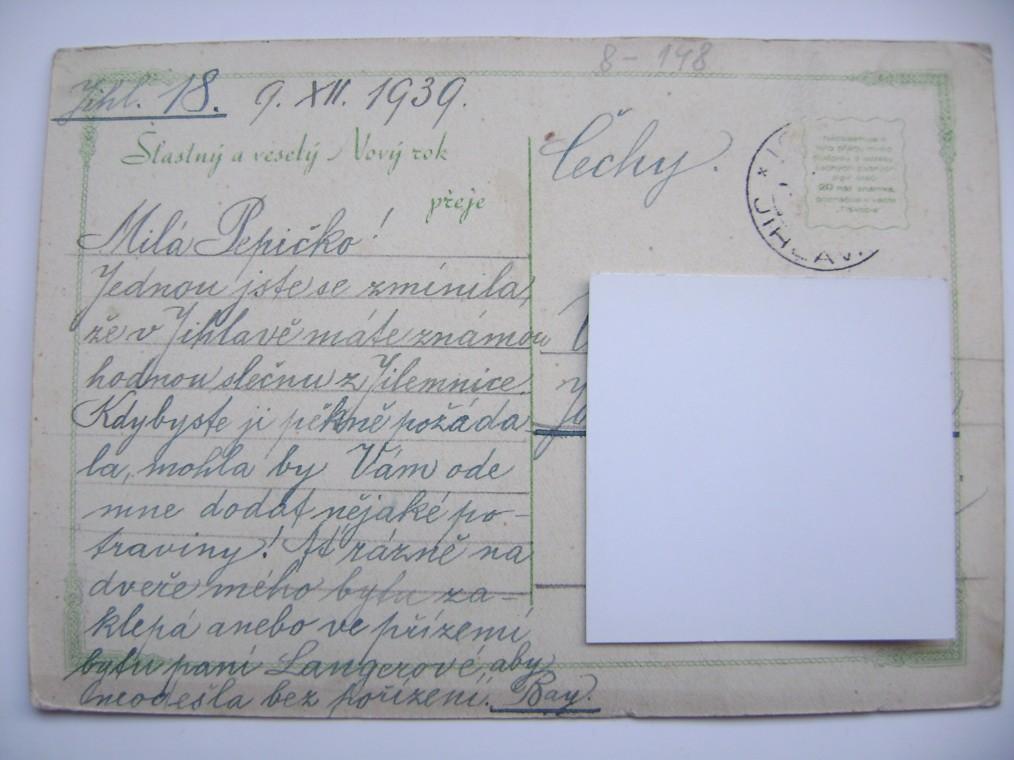 8 - 148
Jihl. 18. 9. XII. 1939.
Šťastný a veselý Nový rok
přeje
Čechy.
JIHLAV
20 hal
Milá Pepičko!
Jednou jste se zmínila,
že v Jihlavě máte známou
hodnou slečnu z Jilemnice.
Kdybyste ji pěkně požáda
la, mohla by Vám ode
mne dodat nějaké po-
traviny! Ať rázně na
dveře mého bytu za-
klepá anebo ve přízemí
bytu paní Langerové, aby
neodešla bez pořízení. Bay.